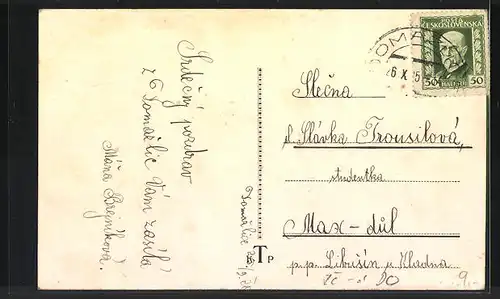 Srdečný pozdrav
z Domažlic Vám zasílá
Máňa Brejníková.
Domažlice
B T P
POŠTA
ČESKOSLOVENSKÁ
50 50
DOMA
26 X 25
Slečna
sl. Slávka Trousilová,
studentka
Max-důl
p.p. Libušín u Kladna